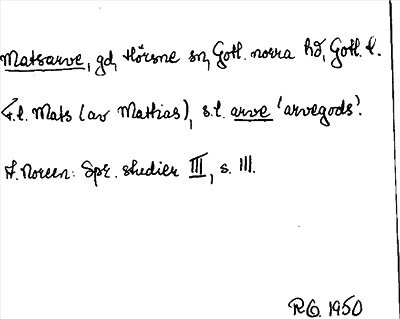 Matsarve, gd, Hörsne sn, Gotl. norra hd, Gotl. l.
F.l. Mats (av Mathias), s.l. arve 'arvegods'.
A. Noreen: Spr. studier III, s. 111.
R.G. 1950